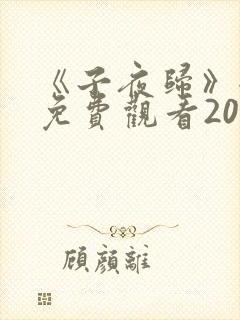 《子夜歸》
免費觀看20
顧顏離